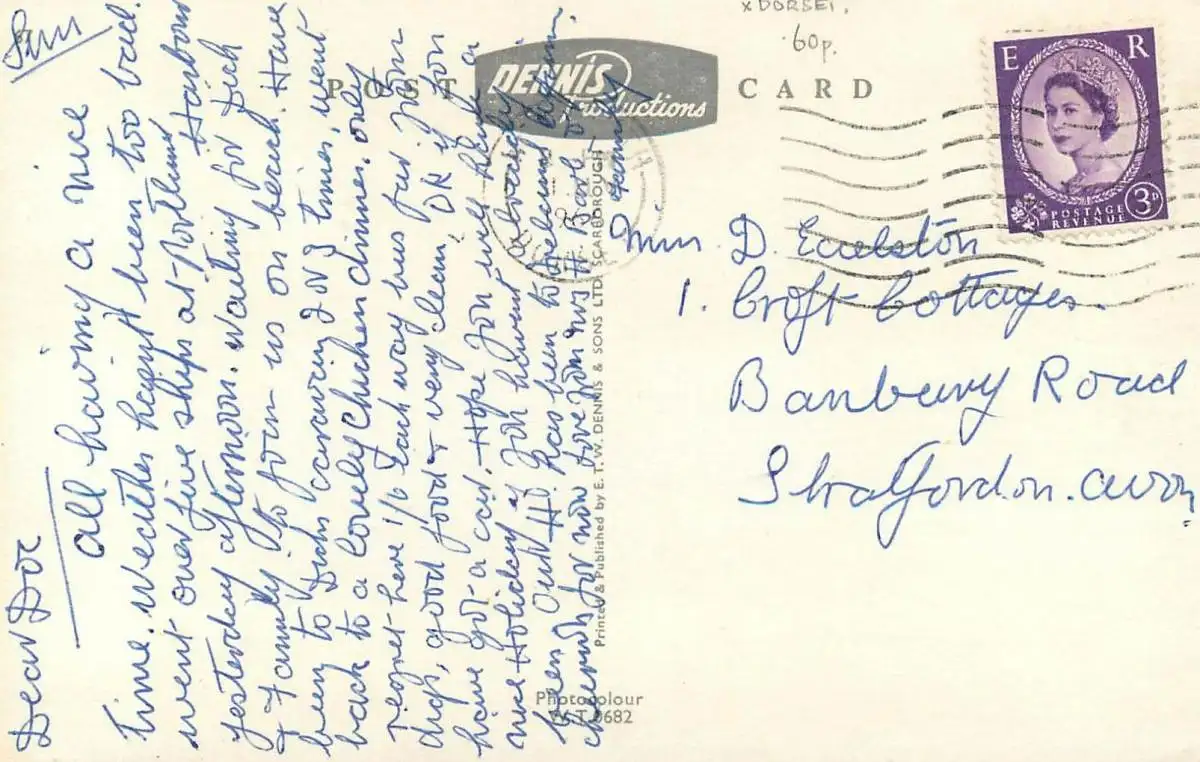 x DORSET.
60p.
POST CARD
DENNIS
Productions
E R
POSTAGE
REVENUE
3D
Sun
Dear Doc
All having a nice
time. weather hasn't been too bad.
went over five ships at Portland Harbour
yesterday afternoon. waiting for Dick
& family to join us on beach. Have
been to Dick's caravan 2 or 3 times, went
back to a lovely chicken dinner. only
regret here is each way bus fair from
digs, good food & very clean, OK if you
have got a car. Hope You will have a
nice Holiday if You havent already
been. Aunt H. has been to
cheerio for now love from us
family
Mrs D. Ecclston
1. Croft Cottages.
Banbury Road
Stratford.on.avon
Printed & Published by E. T. W. DENNIS & SONS LTD. SCARBOROUGH
Photocolour
W.T.0682